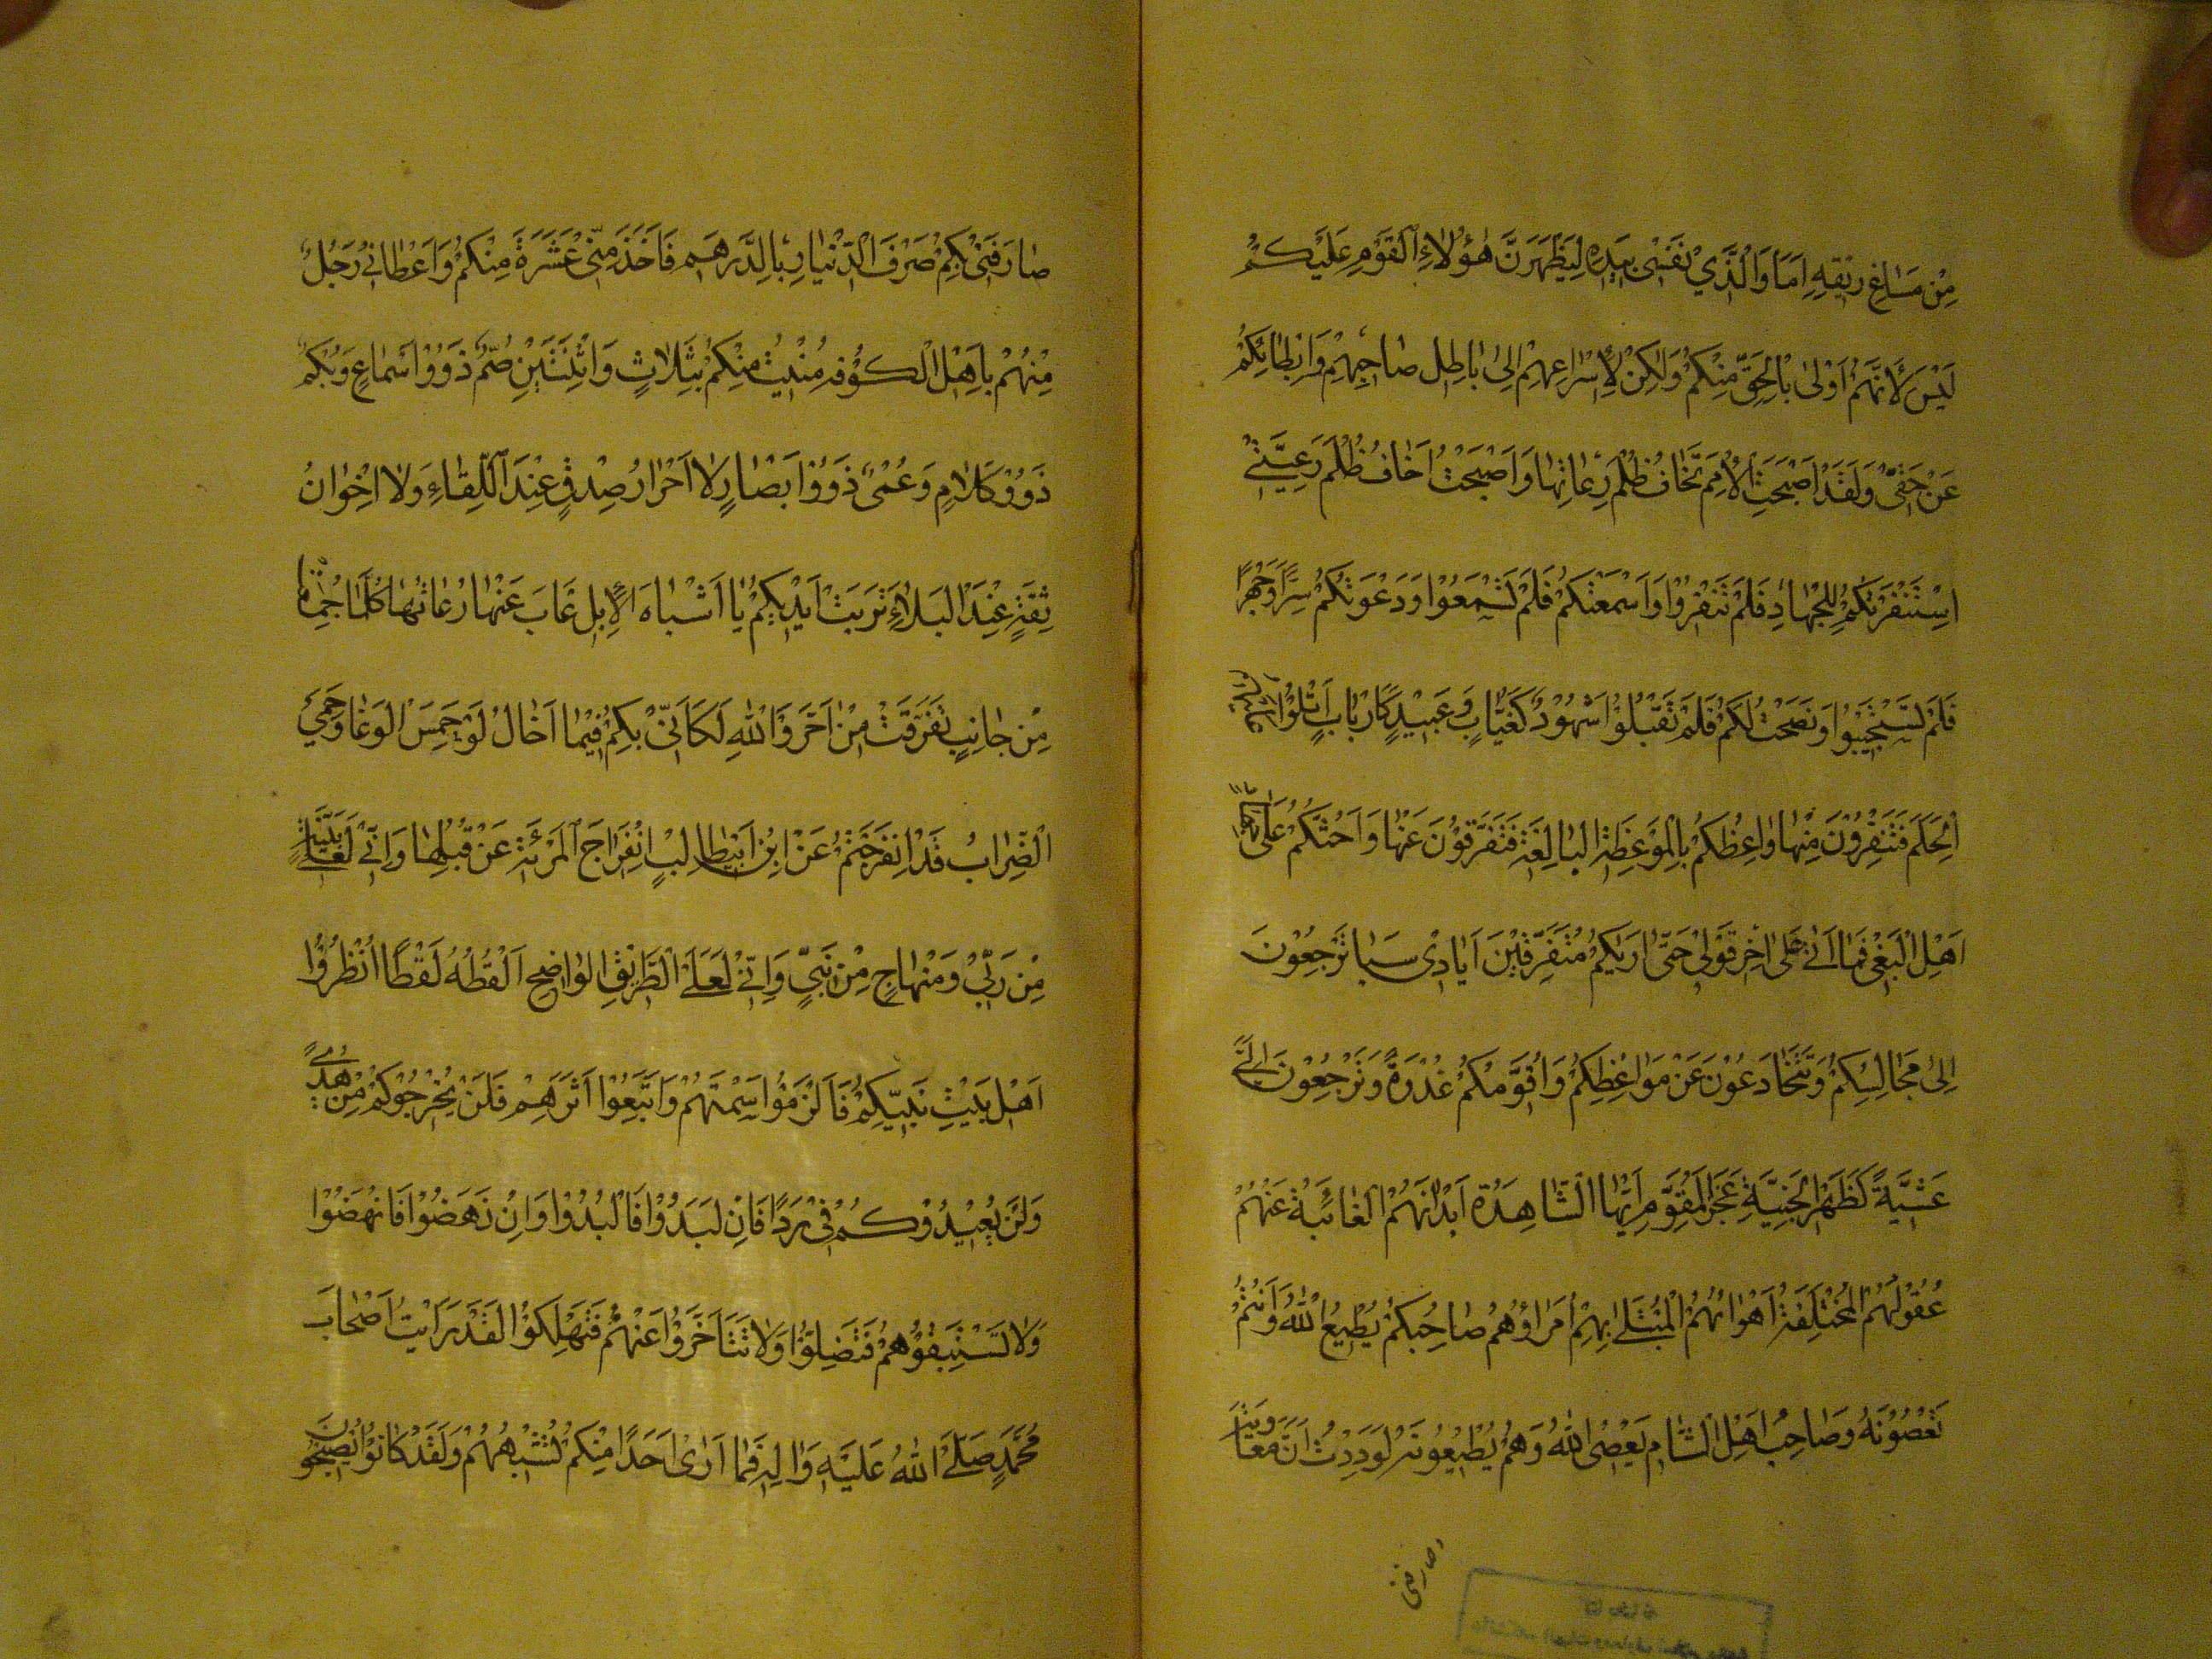 مِنْ مَسَاغِ رِيْقِهِ اَمَا وَالَّذِيْ نَفْسِىْ بِيَدِهِ لَيَظْهَرَنَّ هٰؤُلَاءِ الْقَوْمِ عَلَيْكُمْ
لَيْسَ لِاَنَّهُمْ اَوْلىٰ بِالْحَقِّ مِنْكُمْ وَلٰكِنْ لِاِسْرَاعِهِمْ اِلىٰ بٰاطِلِ صٰاحِبِهِمْ وَاِبْطٰائِكُمْ
عَنْ حَقّىْ وَلَقَدْ اَصْبَحَتِ الْاُمَمُ تَخٰافُ ظُلْمَ رُعٰاتِهٰا وَاَصْبَحْتُ اَخٰافُ ظُلْمَ رَعِيَّتِيْ
اِسْتَنْفَرْتُكُمْ لِلْجِهٰادِ فَلَمْ تَنْفِرُوْا وَاَسْمَعْتُكُمْ فَلَمْ تَسْمَعُوْا وَدَعَوْتُكُمْ سِرًّا وَجَهْرًا
فَلَمْ تَسْتَجِيْبُوْا وَنَصَحْتُ لَكُمْ فَلَمْ تَقْبَلُوْا شُهُوْدٌ كَغُيَّابٍ وَعَبِيْدٍ كَاَرْبٰابٍ اَتْلُوْا عَلَيْكُمُ
الْحِكَمَ فَتَنْفِرُوْنَ مِنْهٰا وَاَعِظُكُمْ بِالْمَوْعِظَةِ الْبٰالِغَةِ فَتَفَرَّقُوْنَ عَنْهٰا وَاَحُثُّكُمْ عَلىٰ جِهٰادِ
اَهْلِ الْبَغْيِ فَمٰا اٰتِيْ عَلىٰ اٰخِرِ قَوْلِيْ حَتّىٰ اَرٰيكُمْ مُتَفَرِّقِيْنَ اَيٰادِىْ سَبٰا تَرْجِعُوْنَ
اِلىٰ مَجٰالِسِكُمْ وَتَتَخٰادَعُوْنَ عَنْ مَوٰاعِظِكُمْ وَاُقَوِّمُكُمْ غُدْوَةً وَتَرْجِعُوْنَ اِلَيَّ
عَشِيَّةً كَظَهْرِ الْحَنِيَّةِ عَجَزَ الْمُقَوِّمُ اَيُّهَا الشّٰاهِدَةُ اَبْدٰانُهُمْ الْغٰائِبَةُ عَنْهُمْ
عُقُوْلُهُمْ الْمُخْتَلِفَةُ اَهْوٰائُهُمْ الْمُبْتَلىٰ بِهِمْ اُمَرٰاؤُهُمْ صٰاحِبُكُمْ يُطِيْعُ اللّٰهَ وَاَنْتُمْ
تَعْصُوْنَهُ وَصٰاحِبُ اَهْلِ الشّٰامِ يَعْصِى اللّٰهَ وَهُمْ يُطِيْعُوْنَهُ لَوَدِدْتُ اَنَّ مُعٰاوِيَةَ
وصارفنى
صٰارَفَنِيْ بِكُمْ صَرْفَ الدِّيْنٰارِ بِالدِّرْهَمِ فَاَخَذَ مِنّىْ عَشَرَةَ مِنْكُمْ وَاَعْطٰانِيْ رَجُلً
مِنْهُمْ يٰا اَهْلَ الْكُوْفَةِ مُنِيْتُ مِنْكُمْ بِثَلٰاثٍ وَاثْنَتَيْنِ صُمٌّ ذَوُوْا اَسْمٰاعٍ وَبُكْمٌ
ذَوُوْ كَلٰامٍ وَعُمْىٌ ذَوُوْا اَبْصٰارٍ لٰا اَحْرٰارُ صِدْقٍ عِنْدَ اللِّقٰاءِ وَلٰا اِخْوٰانُ
ثِقَةٍ عِنْدَ الْبَلٰاءِ تَرِبَتْ اَيْدِيْكُمْ يٰا اَشْبٰاهَ الْاِبِلِ غٰابَ عَنْهٰا رُعٰاتُهٰا كُلَّمٰا جُمِعَتْ
مِنْ جٰانِبٍ تَفَرَّقَتْ مِنْ اٰخَرَ وَاللّٰهِ لَكَاَنّىْ بِكُمْ فِيْمٰا اَخٰالُ لَوْ حَمِسَ الْوَغٰا وَحَمِيَ
الضِّرٰابُ قَدِ انْفَرَجْتُمْ عَنْ اِبْنِ اَبِيْطٰالِبٍ اِنْفِرٰاجَ الْمَرْئَةِ عَنْ قُبُلِهٰا وَاِنّىْ لَعَلىٰ بَيِّنَةٍ
مِنْ رَبّىْ وَمِنْهٰاجٍ مِنْ نَبِيٍّ وَاِنّىْ لَعَلَى الطَّرِيْقِ الْوٰاضِحِ اَلْقُطُهُ لَقْطًا اُنْظُرُوْا
اَهْلَ بَيْتِ نَبِيِّكُمْ فَالْزَمُوْا سَمْتَهُمْ وَاتَّبِعُوْا اَثَرَهُمْ فَلَنْ يُخْرِجُوْكُمْ مِنْ هُدىً
وَلَنْ يُعِيْدُوْكُمْ فِىْ رَدًا فَاِنْ لَبَدُوْا فَالْبُدُوْا وَاِنْ نَهَضُوْا فَانْهَضُوْا
وَلٰا تَسْبِقُوْهُمْ فَتَضِلُّوْا وَلٰا تَتَاَخَّرُوْا عَنْهُمْ فَتَهْلِكُوْا لَقَدْ رَاَيْتُ اَصْحٰابَ
مُحَمَّدٍ صَلَّى اللّٰهُ عَلَيْهِ وَاٰلِهِ فَمٰا اَرٰى اَحَدًا مِنْكُمْ يُشْبِهُهُمْ وَلَقَدْ كٰانُوْا يُصْبِحُوْنَ